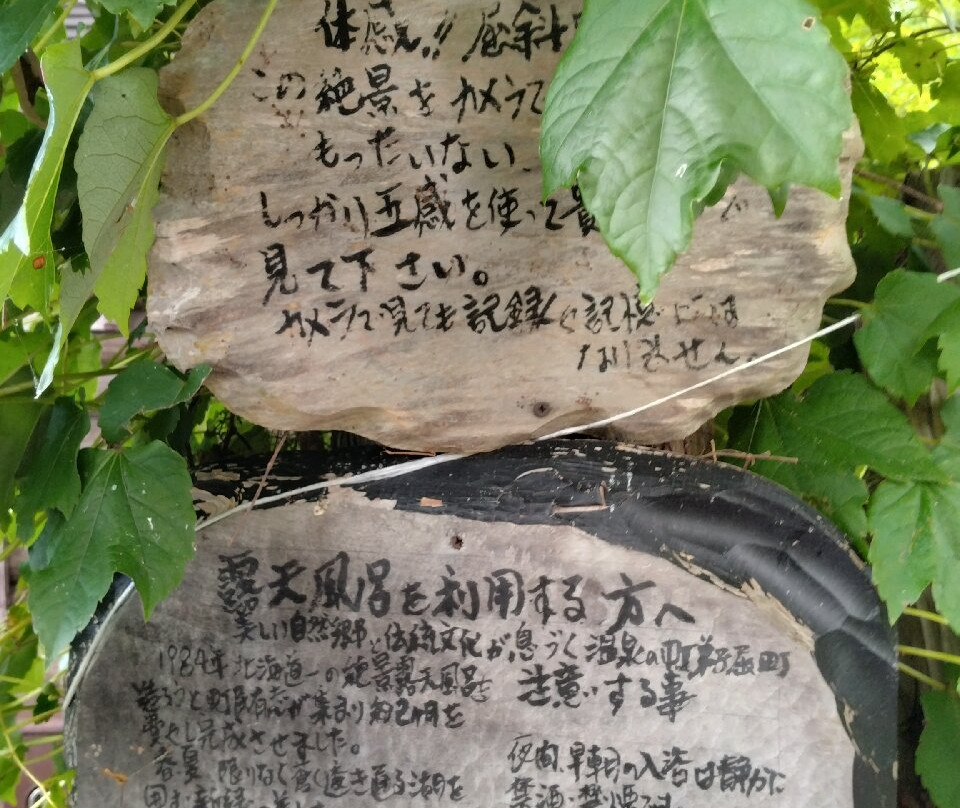 体感!! 屈斜
この絶景を カメラで
もったいない
しっかり五感を使って貴 で
見て下さい。
カメラで見ても記録 記憶には
なりません。
露天風呂を利用する方へ
美しい自然郷と伝統文化が息づく温泉の町弟子屈町
1984年 北海道一の絶景露天風呂を
造ろうと町民有志が集まり約2ヶ月を
費やし完成させました。
春夏 限りなく 透き通る湖を
囲む新緑
注意する事
夜間、早朝の入浴は静かに
禁酒・禁煙です